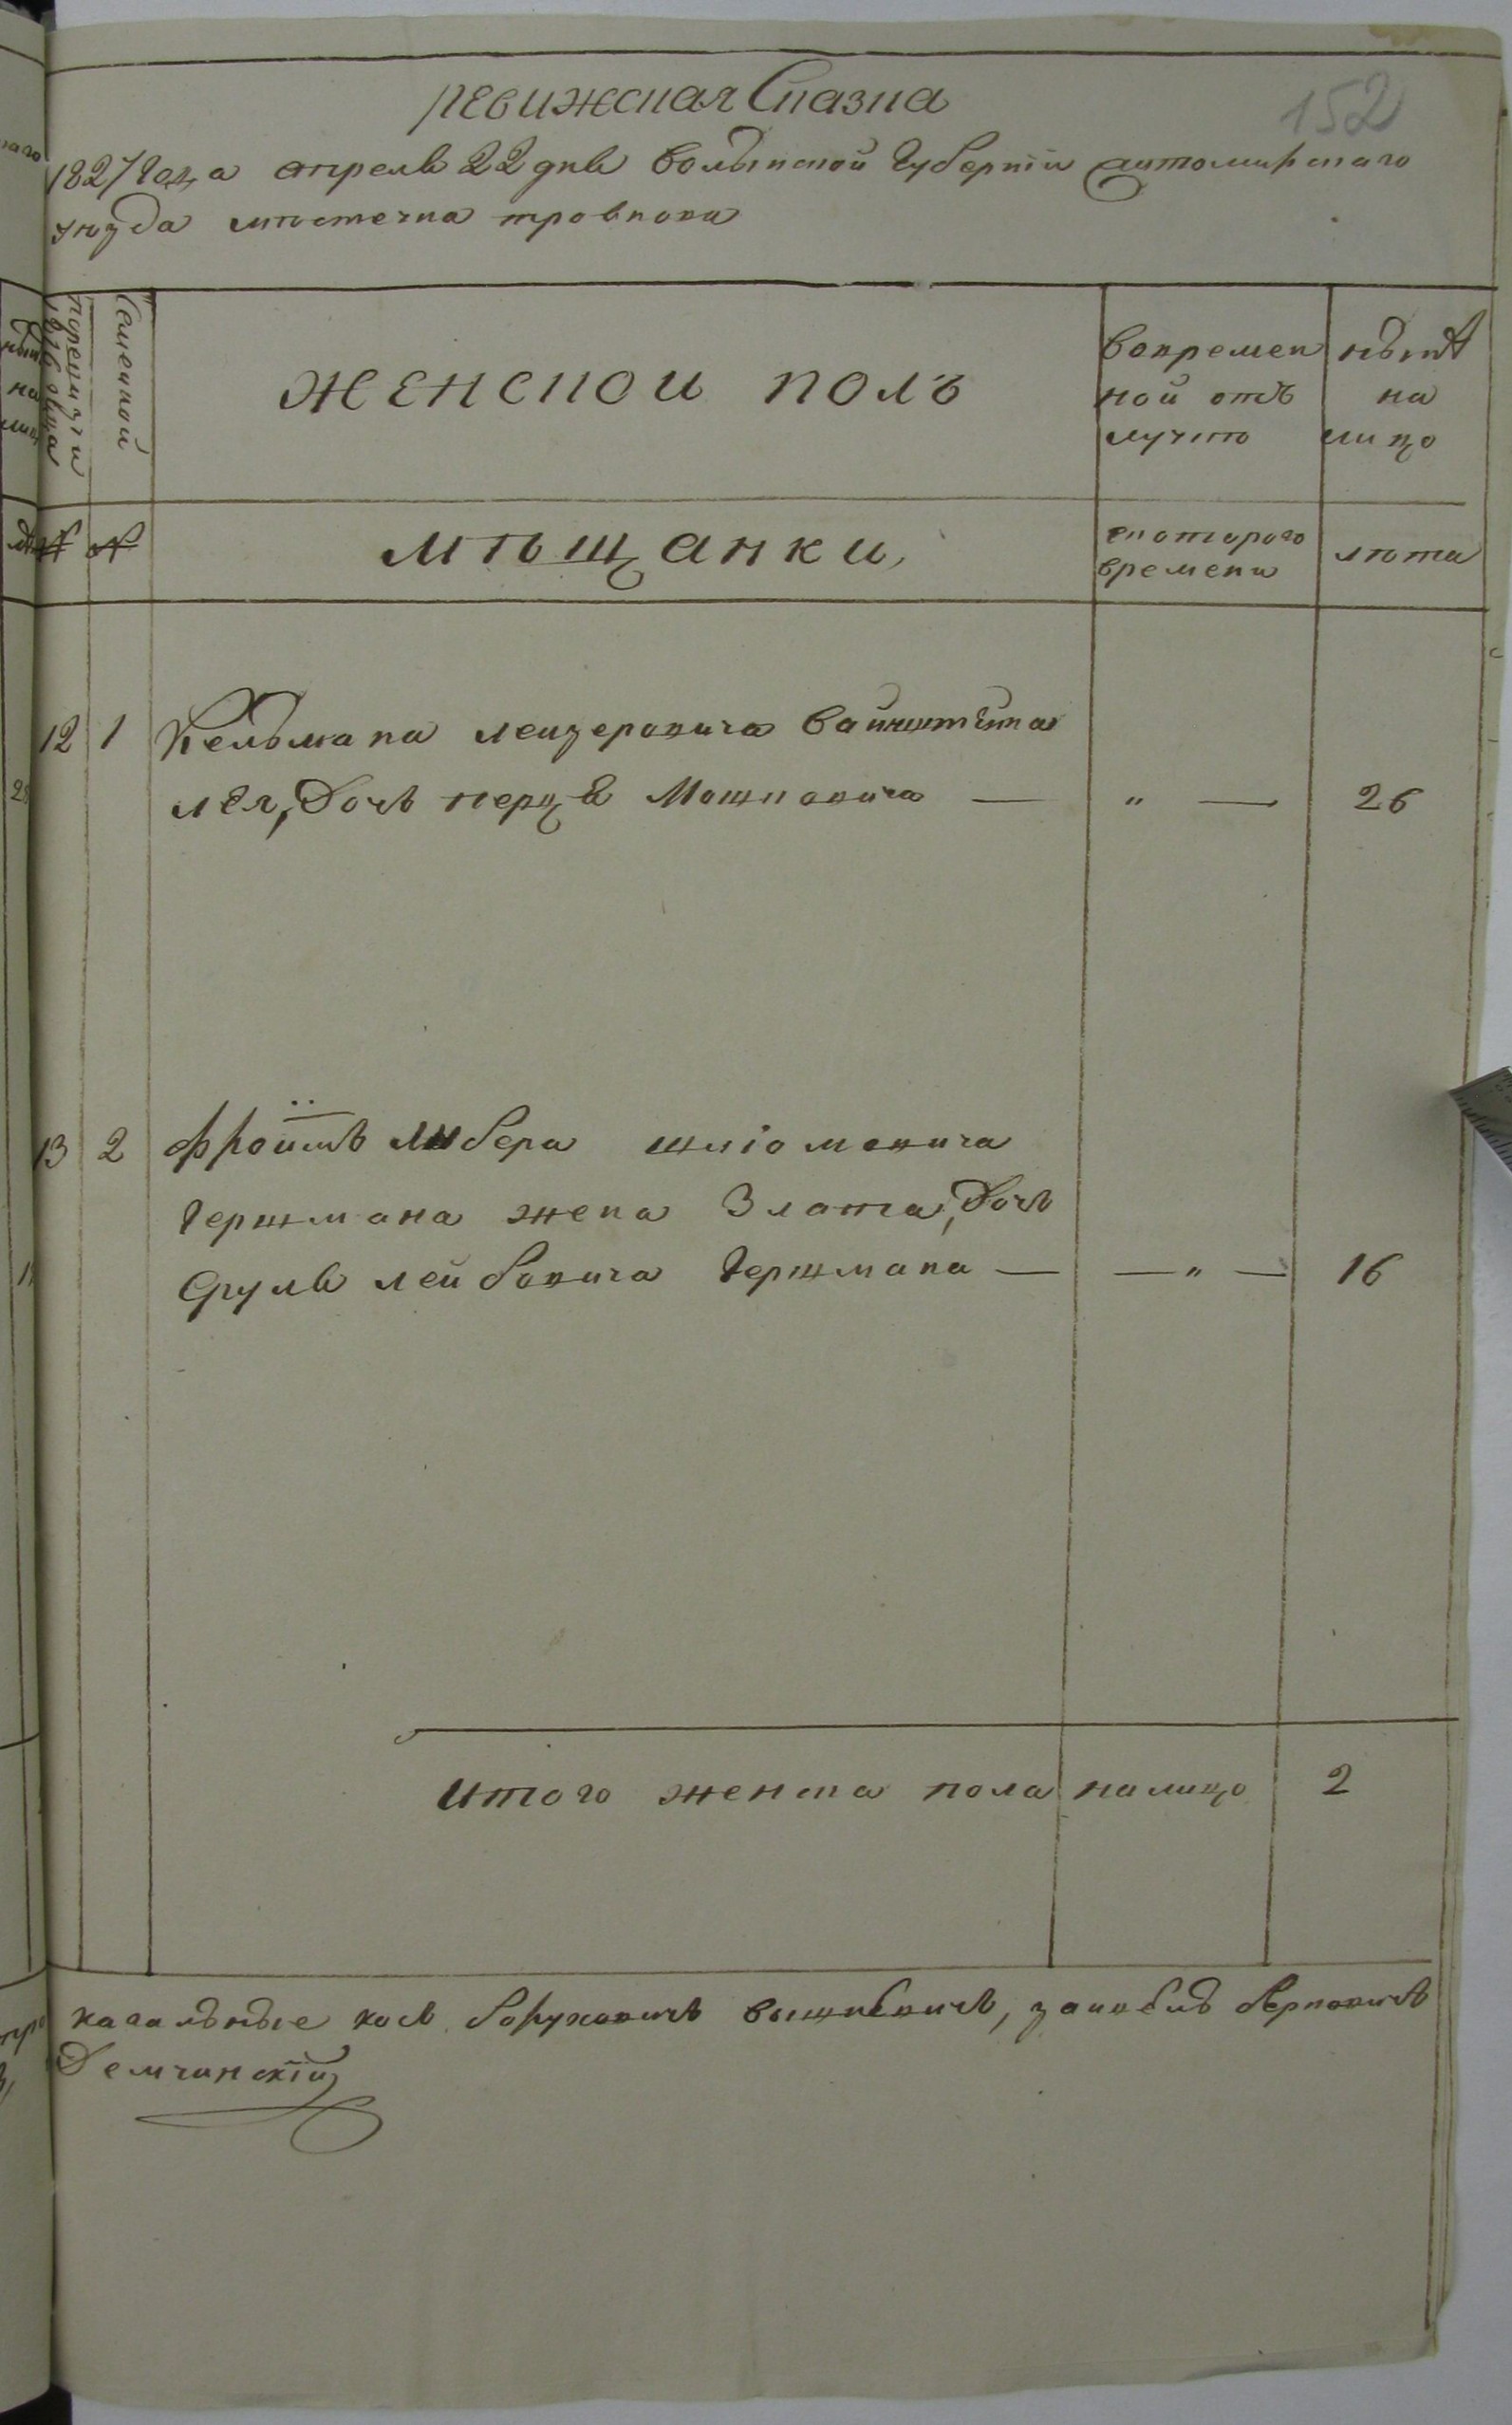 ревижская Сказка
152
1827 года апреля 22 дня волынской Губернии житомирскаго
уезда местечка тровнова
Семейной
женской полъ
вовремен ной отъ лучке
ныне на лицо
№ №
мѣщанки
скоторого времени
лѣта
12 1 Кельмана лейзеровича вайнштейна
лея, Дочь перца Мошковича — " — 26
13 2 Фроимъ либера шліомовича
Гершмана жена Злата, Дочь
Сруля лейбовича Гершмана — — " — 16
итого женска пола налицо 2
кагальные иось боруховичь, берковичь
Демчинскій